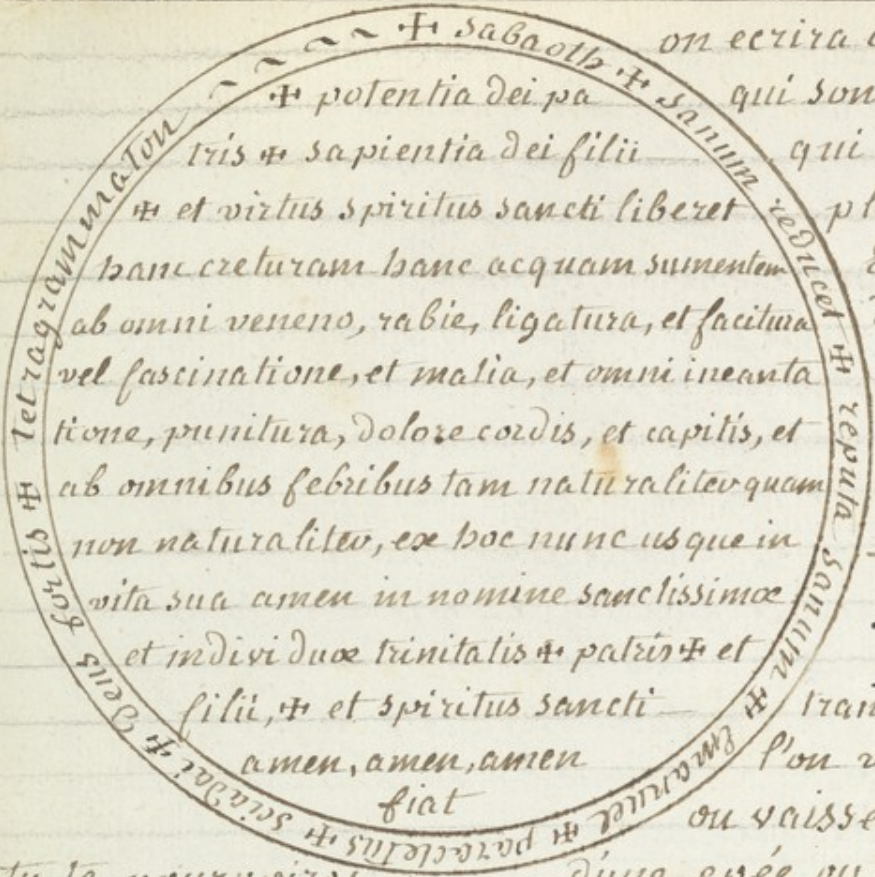 ✠ sabaoth ✠ sanum reducet ✠ reputa sanum ✠ Emanuel ✠ paracletus ✠ sciadai ✠ Deus fortis ✠ tetragrammaton ~ ~ ~ ~
✠ potentia dei pa
tris ✠ sapientia dei filii
✠ et virtus spiritus sancti liberet
hanc creturam hanc acquam sumentem
ab omni veneno, rabie, ligatura, et facitura
vel fascinatione, et malia, et omni incanta
tione, punitura, dolore cordis, et capitis, et
ab omnibus febribus tam naturaliter quam
non naturaliter, ex hoc nunc usque in
vita sua amen in nomine sanctissimæ
et individuæ trinitatis ✠ patris ✠ et
filii, ✠ et spiritus sancti
amen, amen, amen
fiat
on ecrira
qui son
qui
pl
tran
l'on v
ou vaisse
d'une